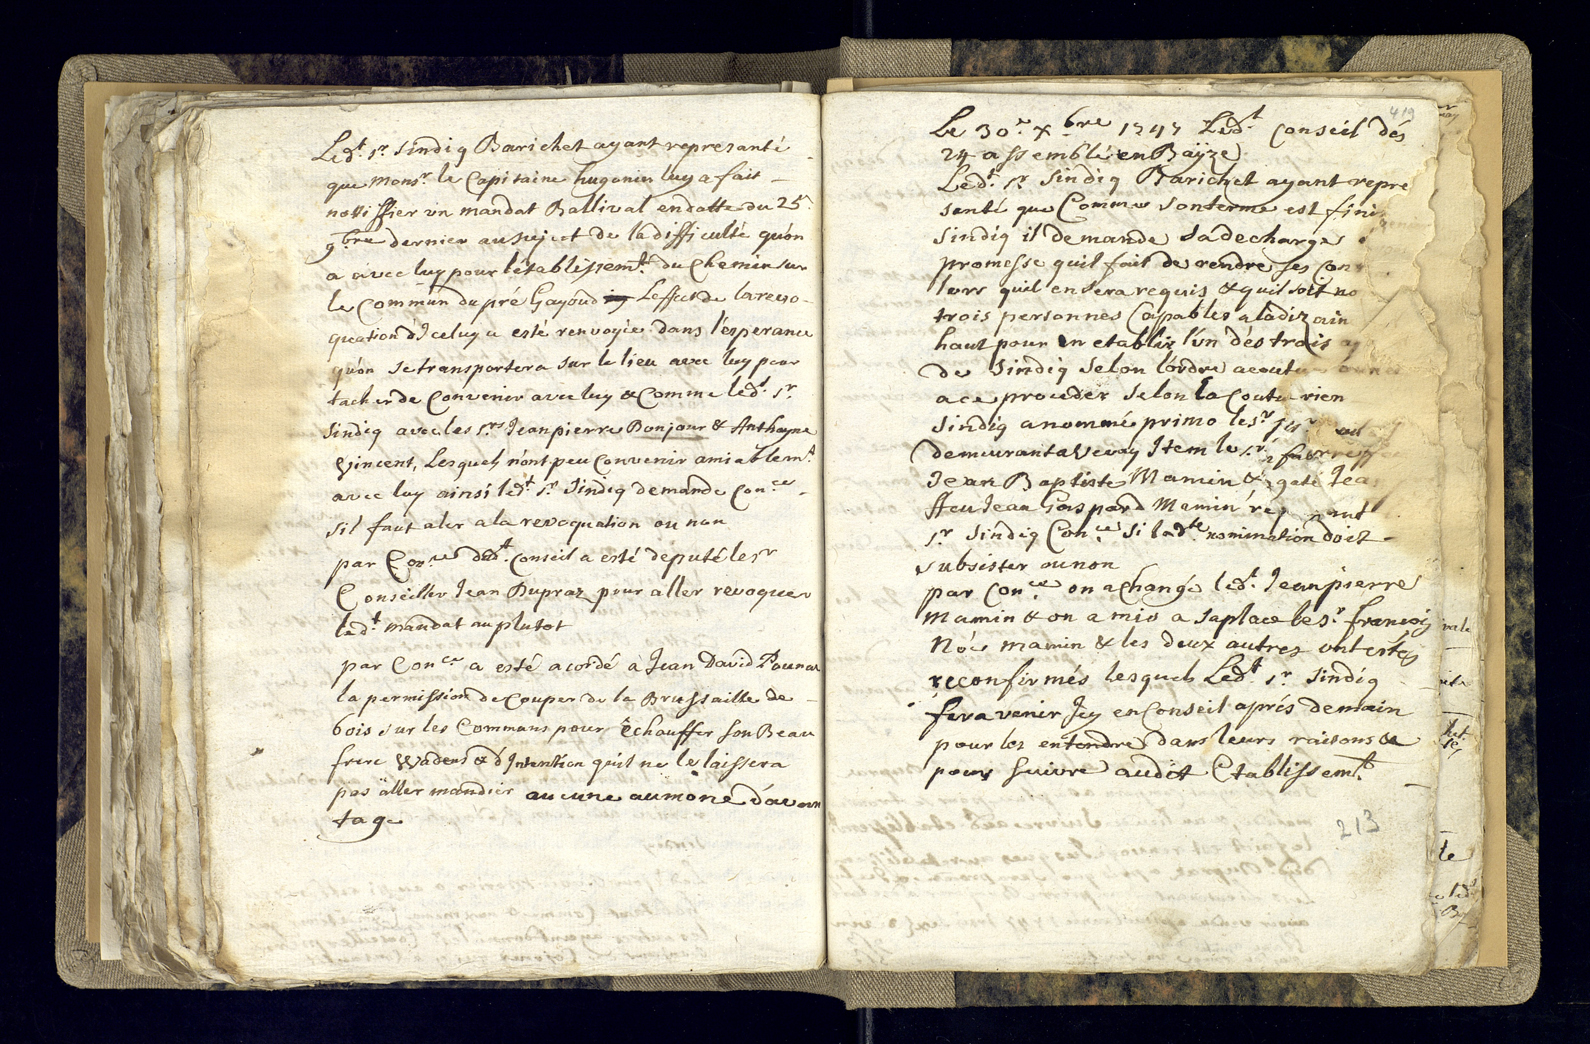 Led.t s.r sindiq Barichet ayant representé
que Mons.r le Capitaine hugonin luy a fait
nottiffier un mandat Ballival en datte du 25.
9.bre dernier au sujest de la difficulté qu'on
a avec luy pour l'établissem.t du Chemin sur
le Commun du pré Gayoud Leffect de la revo-
quation d'Iceluy a esté renvoyée dans l'esperance
qu'on se transportera sur le lieu avec luy pour
tacher de Convenir avec luy & Comme led.t s.r
sindiq avec les s.rs Jean pierre Bonjour & Anthoyne
Vincent, Lesquels n'ont peu Convenir amiablem.t
avec luy ainsi led.t s.r sindiq demande Con.ce
sil faut aler a la revoquation ou non
par Con.ce dud.t Conseil a esté deputé le s.r
Conseiller Jean Dupraz pour aller revoquer
led.t mandat au plutot
par Con.ce a esté acordé à Jean David
la permission de Couper de la Brussaille de
bois sur les Commans pour Echauffer son Beau
frere & d'Intention qu'il ne le laissera
pas äller mandier aucune aumone d'avan
tage
419
Le 30.e x.bre 1747 Led.t Conseil dés
24 assemblé en Baÿze
Led.t s.r sindiq Barichet ayant repre
senté que Comme son terme est fini
sindiq il demande sa decharge
promesse quil fait de rendre ses
lors quil en sera requis & quil soit
trois personnes Capables a la dizain
haut pour en etablir l'un dés trois
de sindiq selon l'ordre
a ce proceder selon la
sindiq a nommé primo le s.r
demeurant a Vevay Item le s.r
Jean Baptiste Mamin &
ffeu Jean Gaspard Mamin
s.r sindiq Con.ce si lad.te nomination doit
subsister ou non
par Con.ce on a Changé led.t Jean pierre
Mamin & on a mis a sa place le s.r francois
Noé mamin & les deux autres ont estés
reconfirmés lesquels Led.t s.r sindiq
fera venir Icy en Conseil aprés demain
pour les entendre dans leurs raisons &
pour suivre audit Etablissem.t
213